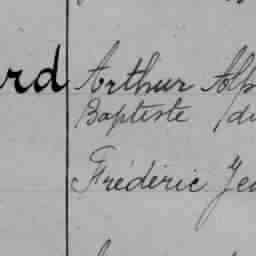 rd Arthur Alp
Baptiste (di
Frédéric Jea